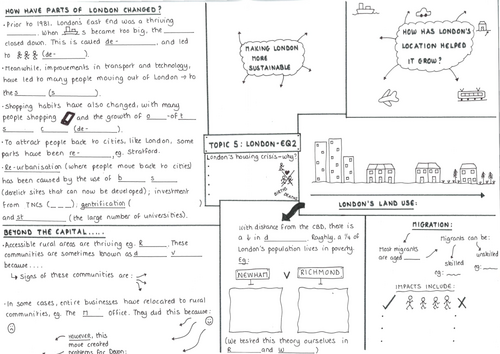 HOW HAVE PARTS OF LONDON CHANGED?
• Prior to 1981, London's East End was a thriving
______. When ships became too big, the ______
closed down. This is called de-______, and led
to (de-______).
• Meanwhile, improvements in transport and technology,
have led to many people moving out of London → to
the s______ (s______).
• Shopping habits have also changed, with many
people shopping and the growth of o___-of-t___
s______ c______ (de-______).
• To attract people back to cities, like London, some
parts have been re-______, eg. Stratford.
• Re-urbanisation (where people move back to cities)
has been caused by the use of b______ s______
(derelict sites that can now be developed); investment
from TNCs (___); gentrification (______)
and st______ (the large number of universities).
BEYOND THE CAPITAL.....
• Accessible rural areas are thriving eg. R______. These
communities are sometimes known as d______ v______
because....
↳ Signs of these communities are:
• In some cases, entire businesses have relocated to rural
communities, eg. The M___ office. They did this because:
HOWEVER, this
move created
problems for Devon:
MAKING LONDON
MORE
SUSTAINABLE
HOW HAS LONDON'S
LOCATION HELPED
IT GROW?
TOPIC 5: LONDON-EQ2
London's housing crisis-why?
BIRTHS
DEATHS
With distance from the CBD, there is
a ↓ in d______. Roughly, a ¼ of
London's population lives in poverty.
Eg:
NEWHAM V RICHMOND
(We tested this theory ourselves in
R______ and W______)
LONDON'S LAND USE:
MIGRATION:
Most migrants
are aged ____
Migrants can be:
skilled
eg:
unskilled
eg:
IMPACTS INCLUDE: